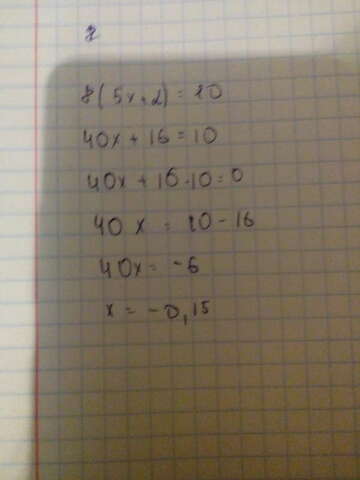 8(5x+2)=10
40x+16=10
40x+16-10=0
40x=10-16
40x=-6
x=-0,15